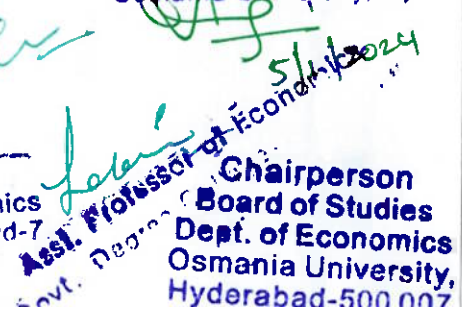 5/1/2024
Asst. Professor of Economics
Govt. Degree
ics
d-7
Chairperson
Board of Studies
Dept. of Economics
Osmania University,
Hyderabad-500 007